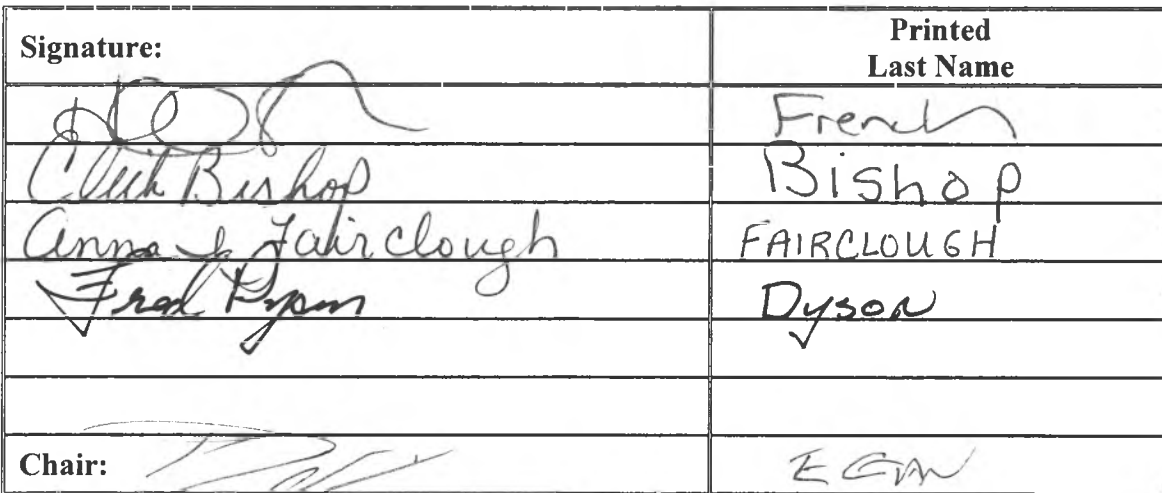 Signature: Printed
Last Name
French
Click Bishop Bishop
Anna I Fairclough FAIRCLOUGH
Fred Dyson Dyson
Chair: EGAN